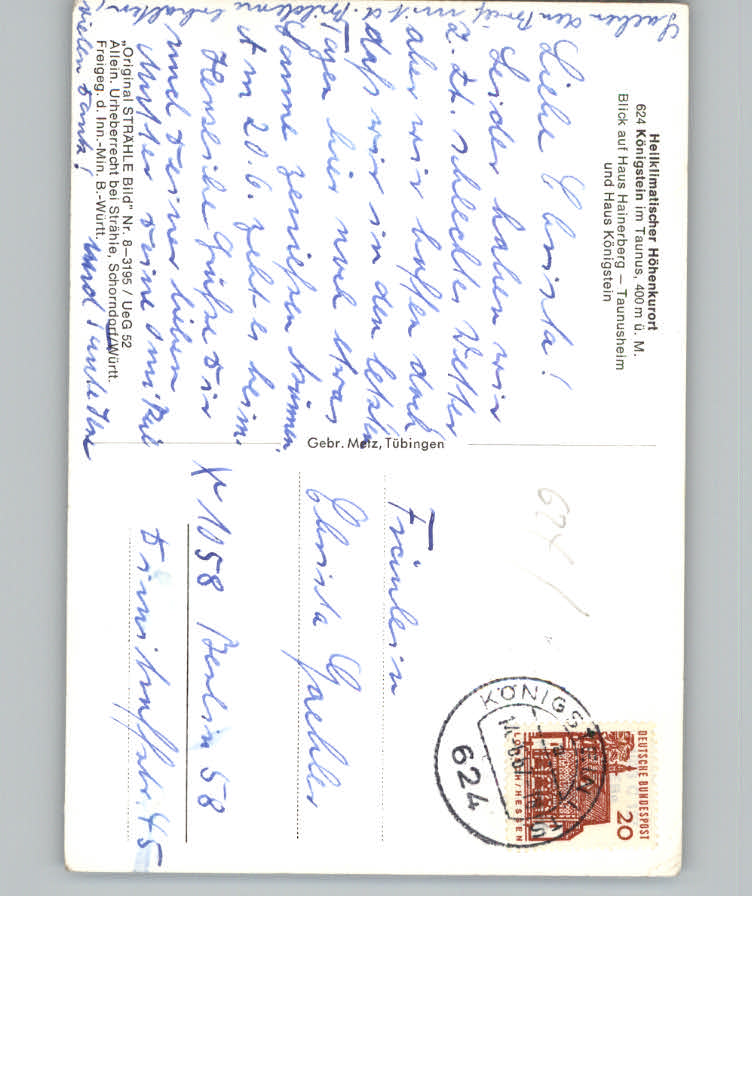 Heilklimatischer Höhenkurort
624 Königstein im Taunus, 400 m ü. M.
Blick auf Haus Hainerberg – Taunusheim
und Haus Königstein
Liebe Christa!
Leider haben wir
z. Zt. schlechtes Wetter
aber wir hoffen doch
daß wir in den letzten
Tagen hier noch etwas
Sonne genießen können
Am 20.6. geht es heim.
Herzliche Grüße Dir
und Deiner lieben
Mutter Deine
und Tante
den Brief mit d. Bildern erhalten,
vielen Dank!
"Original STRÄHLE Bild" Nr. 8–3195 / UeG 52
Allein. Urheberrecht bei Strähle, Schorndorf/Württ.
Freigeg. d. Inn.-Min. B.-Württ.
Gebr. Metz, Tübingen
DEUTSCHE BUNDESPOST
20
LORSCH/HESSEN
KÖNIGSTEIN
624
Fräulein
Christa Gaebler
X 1058 Berlin 58
Dimitroffstr. 45